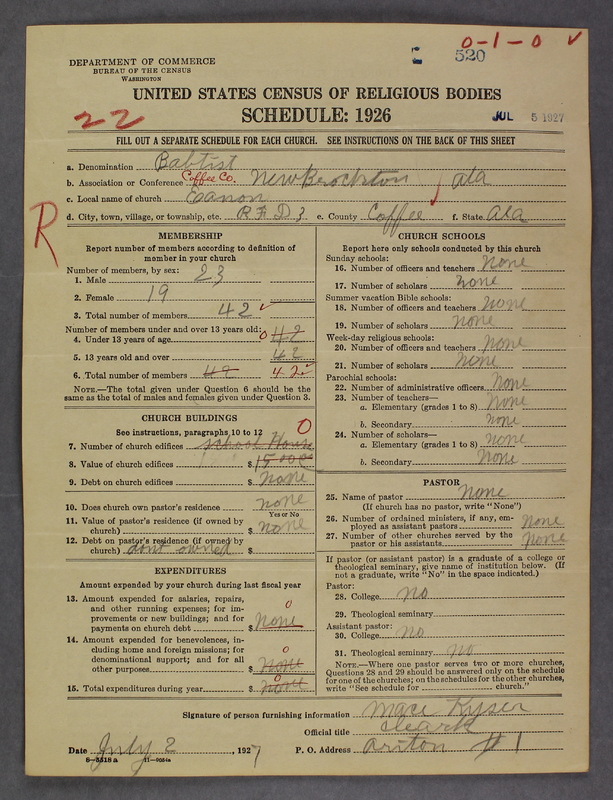 0-1-0 ✓
520
DEPARTMENT OF COMMERCE
BUREAU OF THE CENSUS
WASHINGTON
UNITED STATES CENSUS OF RELIGIOUS BODIES
22
SCHEDULE: 1926
JUL 5 1927
FILL OUT A SEPARATE SCHEDULE FOR EACH CHURCH. SEE INSTRUCTIONS ON THE BACK OF THIS SHEET
a. Denomination Babtist
b. Association or Conference Coffee Co. New Brockton Ala
c. Local name of church Eanon
d. City, town, village, or township, etc. R F D 3 e. County Coffee f. State Ala
R
MEMBERSHIP
Report number of members according to definition of
member in your church
Number of members, by sex:
1. Male 23
2. Female 19
3. Total number of members 42 ✓
Number of members under and over 13 years old:
4. Under 13 years of age 0 42
5. 13 years old and over 42
6. Total number of members 42 42 ✓
NOTE.—The total given under Question 6 should be the
same as the total of males and females given under Question 3.
CHURCH BUILDINGS
See instructions, paragraphs 10 to 12
0
7. Number of church edifices school House
8. Value of church edifices $ 15000
9. Debt on church edifices $ none
10. Does church own pastor's residence none
Yes or No
11. Value of pastor's residence (if owned by
church) $ none
12. Debt on pastor's residence (if owned by
church) dont owned $
EXPENDITURES
Amount expended by your church during last fiscal year
13. Amount expended for salaries, repairs,
and other running expenses; for im-
provements or new buildings; and for
payments on church debt $ none 0
14. Amount expended for benevolences, in-
cluding home and foreign missions; for
denominational support; and for all
other purposes $ none 0
15. Total expenditures during year $ none 0
CHURCH SCHOOLS
Report here only schools conducted by this church
Sunday schools:
16. Number of officers and teachers none
17. Number of scholars none
Summer vacation Bible schools:
18. Number of officers and teachers none
19. Number of scholars none
Week-day religious schools:
20. Number of officers and teachers none
21. Number of scholars none
Parochial schools:
22. Number of administrative officers none
23. Number of teachers—
a. Elementary (grades 1 to 8) none
b. Secondary none
24. Number of scholars—
a. Elementary (grades 1 to 8) none
b. Secondary none
PASTOR
25. Name of pastor none
(If church has no pastor, write "None")
26. Number of ordained ministers, if any, em-
ployed as assistant pastors none
27. Number of other churches served by the
pastor or his assistants none
If pastor (or assistant pastor) is a graduate of a college or
theological seminary, give name of institution below. (If
not a graduate, write "No" in the space indicated.)
Pastor:
28. College no
29. Theological seminary
Assistant pastor:
30. College no
31. Theological seminary no
NOTE.—Where one pastor serves two or more churches,
Questions 28 and 29 should be answered only on the schedule
for one of the churches; on the schedules for the other churches,
write "See schedule for church."
Signature of person furnishing information Mace Kyser
Official title Cleark
Date July 2, 1927 P. O. Address Ariton #1
8—5518 a 11—9054a